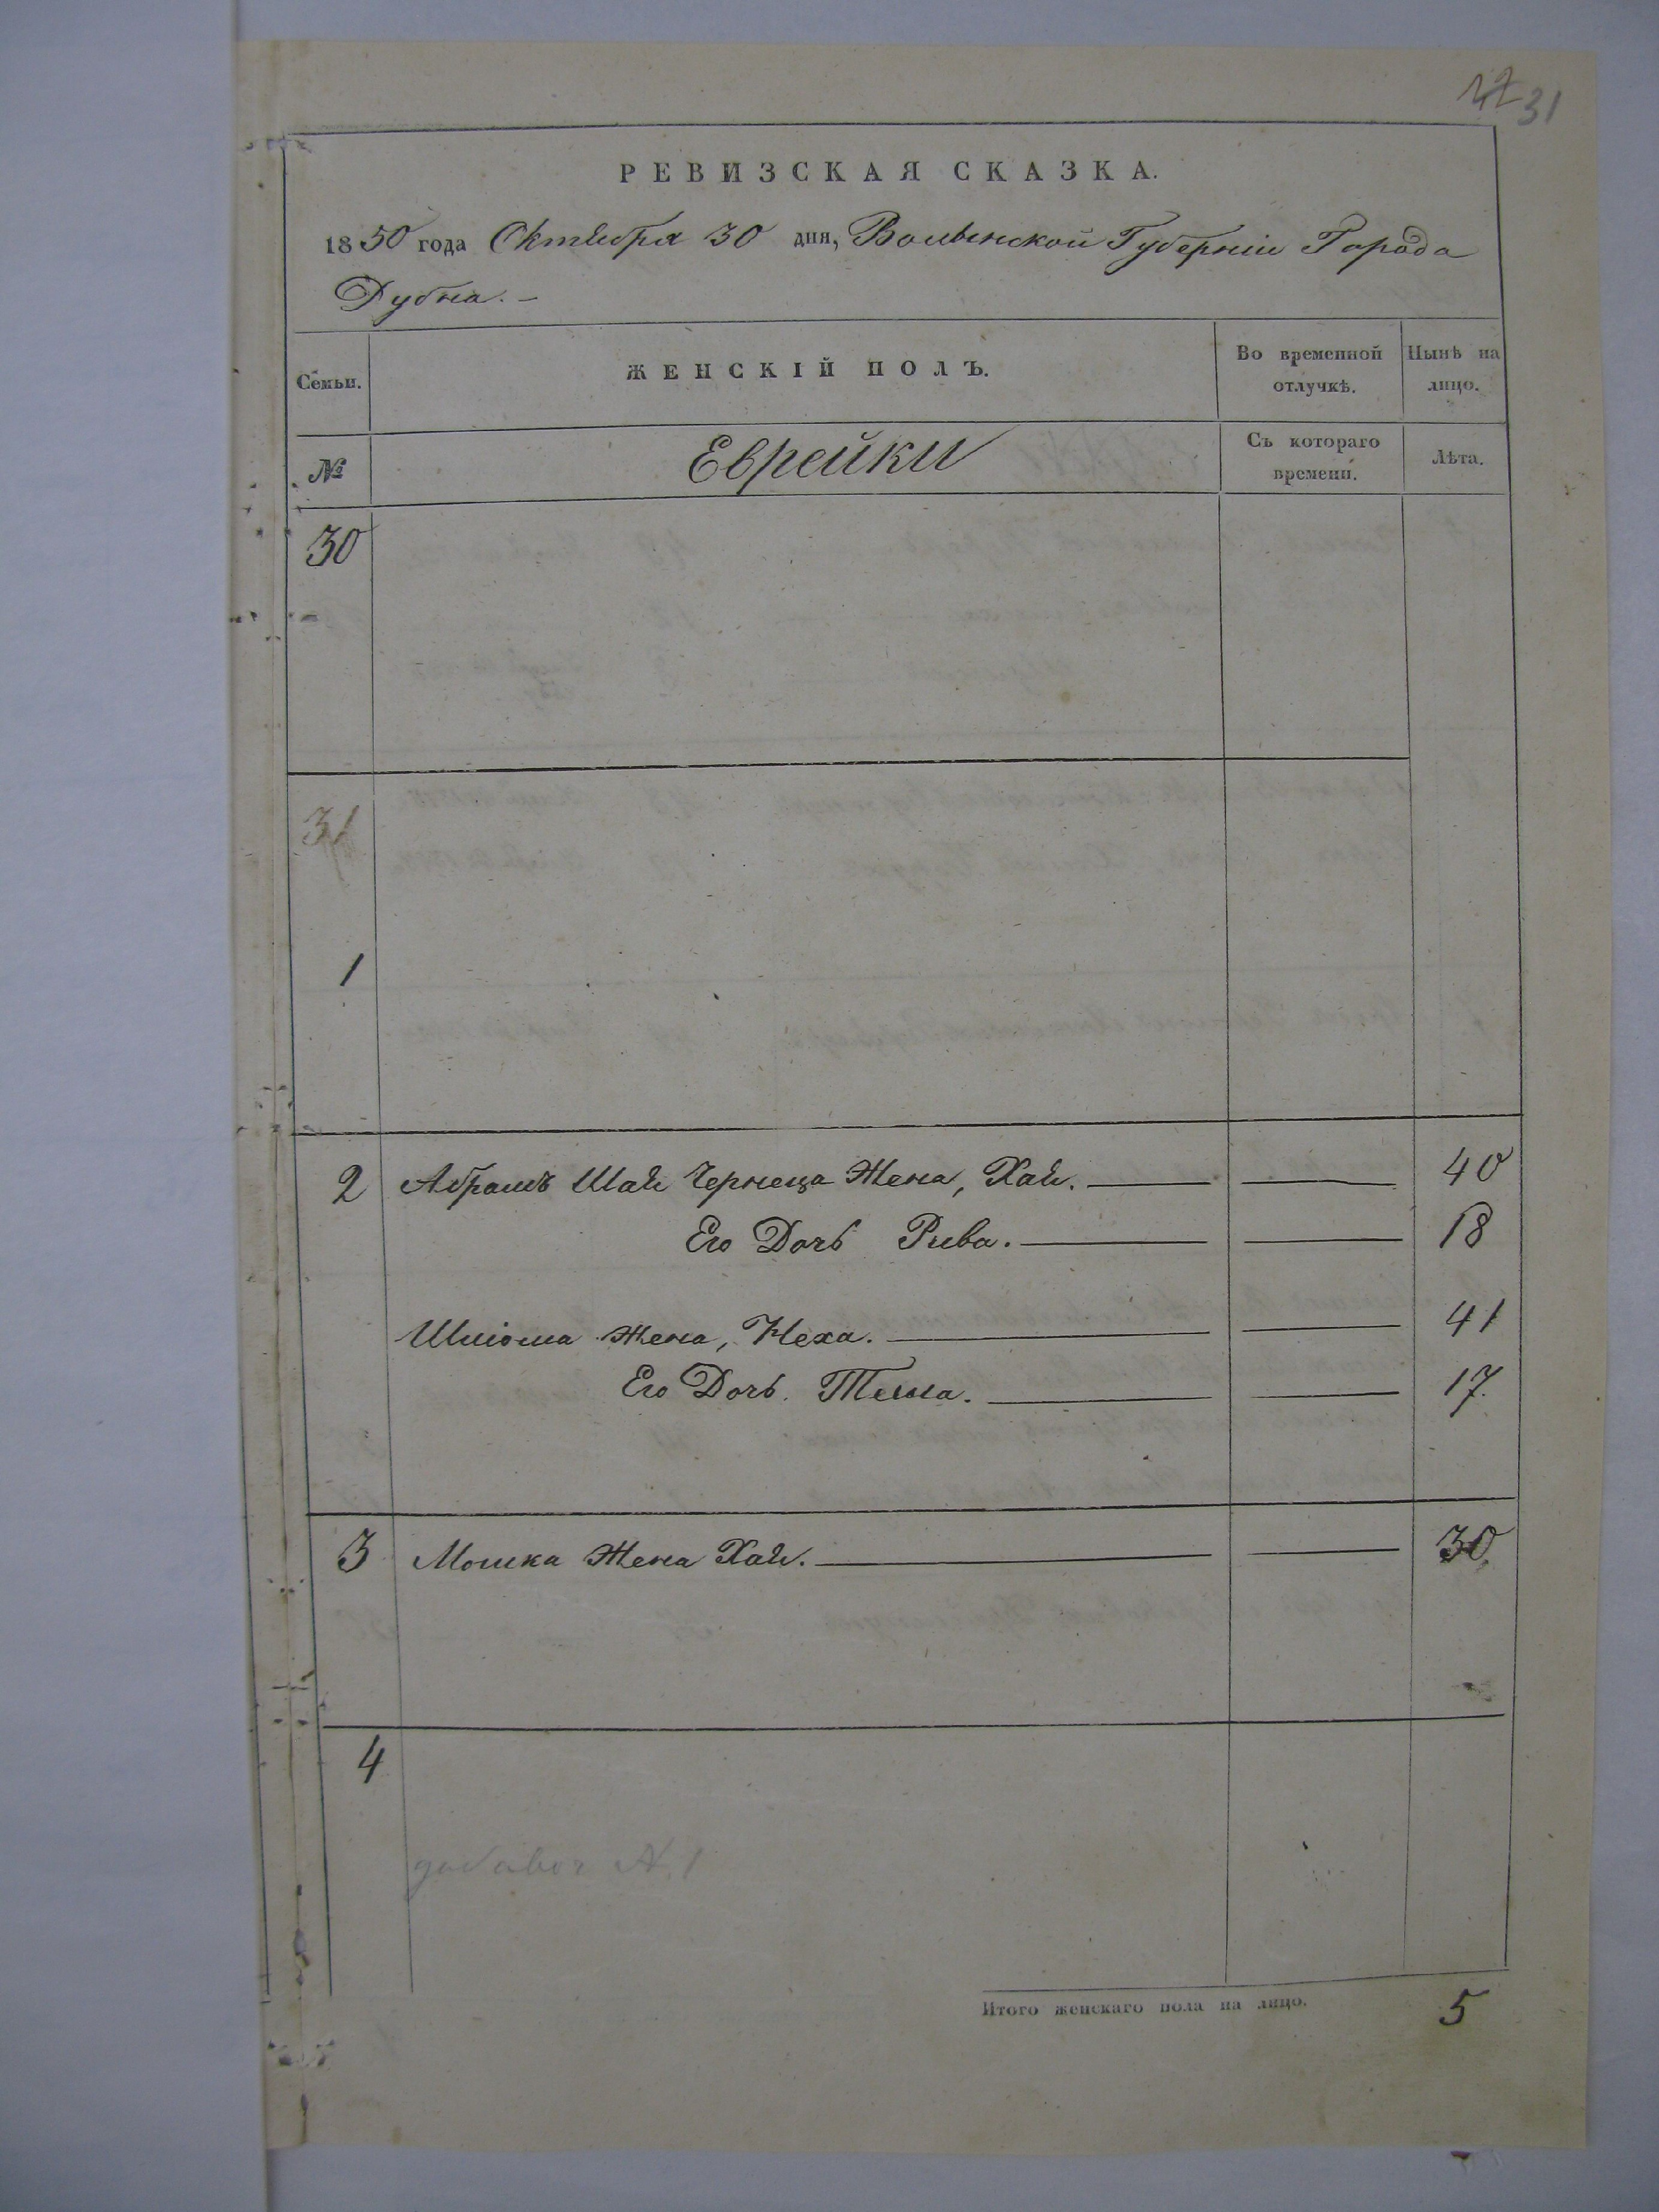 31
РЕВИЗСКАЯ СКАЗКА.
1850 года Октября 30 дня, Волынской Губерніи Города
Дубна. –
Семьи.
ЖЕНСКІЙ ПОЛЪ.
Во временной отлучкѣ.
Нынѣ на лицо.
№
Еврейки
Съ котораго времени.
Лѣта.
30
31
1
2 Абрамъ Шаи Чернеца Жена, Хая. 40
Его Дочь Рива. 18
Шліома Жена, Неха. 41
Его Дочь. Тема. 17.
3 Мошка Жена Хая. 30.
4
N. 1
Итого женскаго пола на лицо. 5